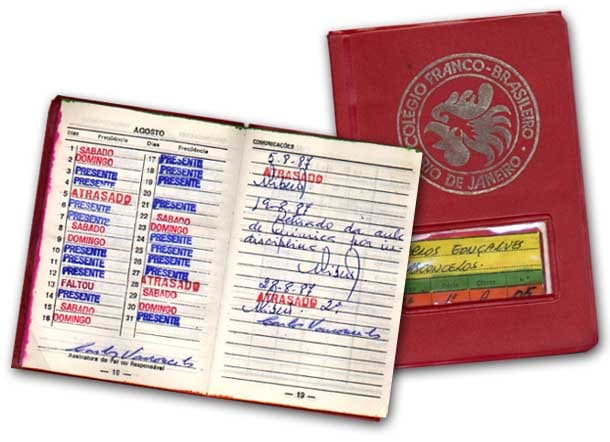 AGOSTO
Dias Freqüência Dias Freqüência
1 SABADO
2 DOMINGO
3 PRESENTE
4 PRESENTE
5 ATRASADO
6 PRESENTE
7 PRESENTE
8 SABADO
9 DOMINGO
10 PRESENTE
11 PRESENTE
12 PRESENTE
13 FALTOU
14 PRESENTE
15 SABADO
16 DOMINGO
17 PRESENTE
18 PRESENTE
19 PRESENTE
20 PRESENTE
21 PRESENTE
22 SABADO
23 DOMINGO
24 PRESENTE
25 PRESENTE
26 PRESENTE
27 PRESENTE
28 ATRASADO
29 SABADO
30 DOMINGO
31 PRESENTE
Carlos Vasconcelos
Assinatura do Pai ou Responsável
— 18 —
COMUNICAÇÕES
5.8.87
ATRASADO
19.8.87
Retirado da aula
de Química por in
disciplina
28.8.87
ATRASADO 2º
Carlos Vasconcelos
— 19 —
COLÉGIO FRANCO-BRASILEIRO
RIO DE JANEIRO
RLOS GONÇALVES
SCONCELOS.